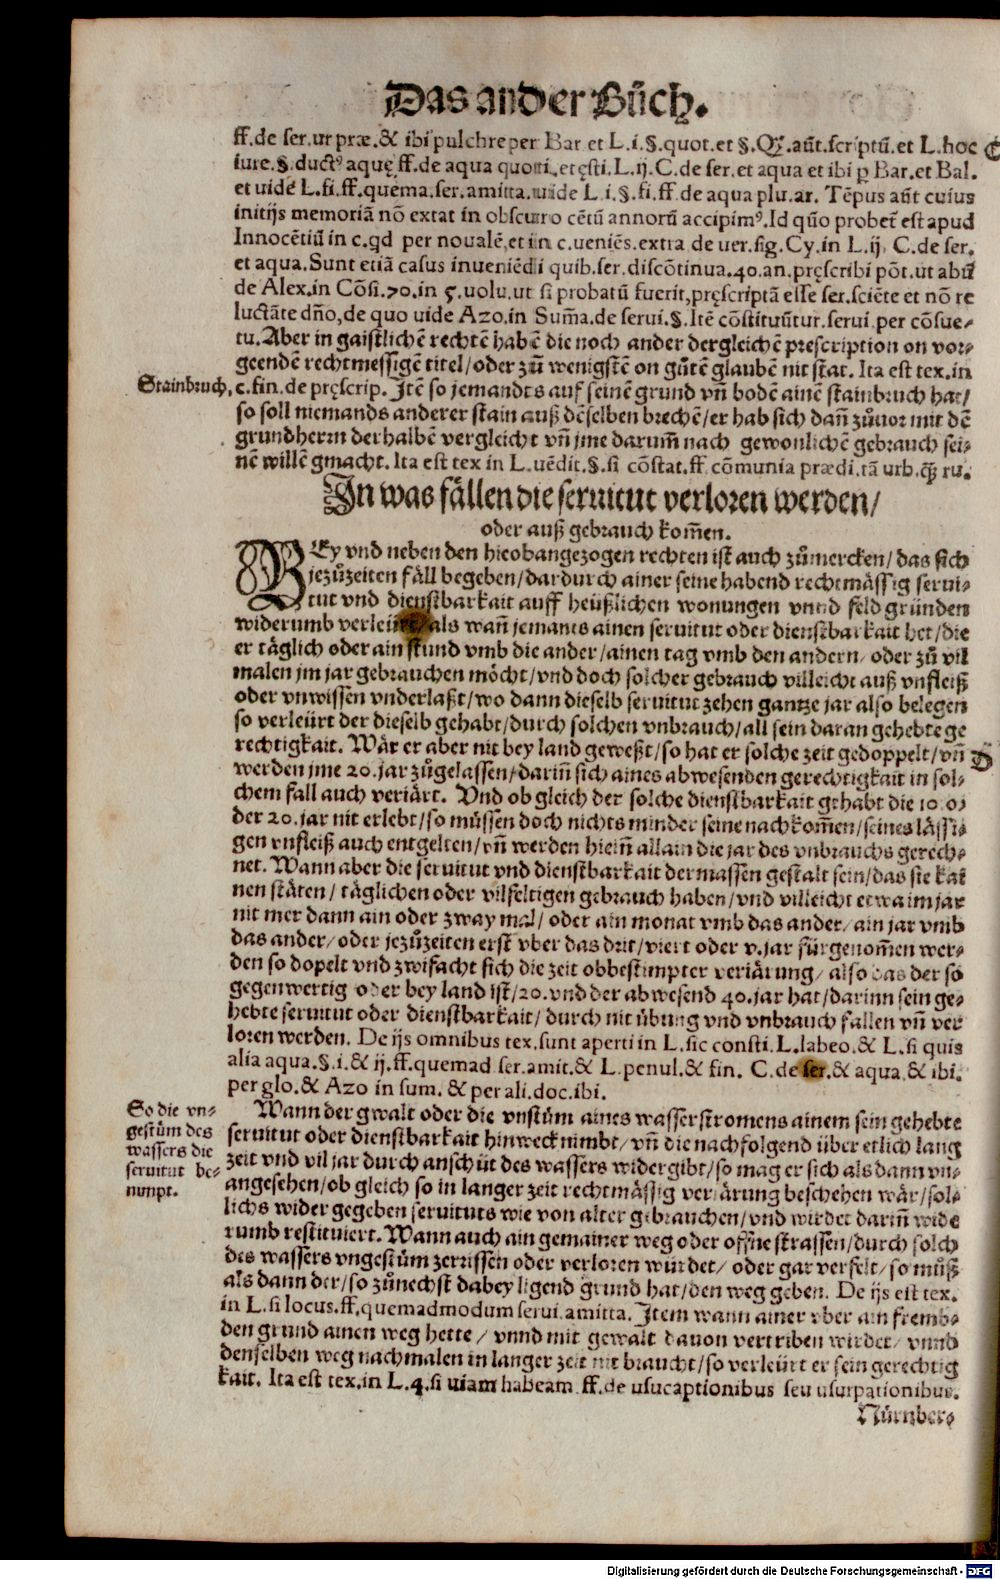 Das ander Bůch.
ff. de ser. ur præ. & ibi pulchre per Bar. et L. i. §. quot. et §. Qȝ. aūt. scriptū. et L. hoc C
iure. §. duct⁹ aquę ff. de aqua quotti. et ęsti. L. ij. C. de ser. et aqua et ibi p̱ Bar. et Bal.
et uidē L. fi. ff. quema. ser. amitta. uide L. i. §. fi. ff. de aqua plu. ar. Tēpus aūt cuius
initijs memoriā nō extat in obscuro cētū annorū accipim⁹. Id quo probet̄ est apud
Innocētiū in c. qd per novalē, et in c. veniēs. extra de uer. sig. Cy. in L. ij. C. de ser.
et aqua. Sunt etiā casus inueniēdi quib. ser. discōtinua. 40. an. pręscribi pōt. ut abū
de Alex. in Cōsi. 70. in 5. uolu. ut si probatū fuerit, pręscriptā esse ser. sciēte et nō re
luctāte dño, de quo uide Azo. in Sum̄a. de serui. §. Itē cōstituūtur. serui per cōsue⸗
tu. Aber in gaistlichē rechtē habē die noch ander dergleichē prescription on vor⸗
geendē rechtmessigē titel/ oder zů wenigstē on gůtē glaubē nit stat. Ita est tex. in
Stainbruch, c. fin. de pręscrip. Itē so jemandts auf seinē grund vn̄ bodē ainē stainbruch hat/
so soll niemands anderer stain auß dēselben brechē/ er hab sich dañ zůuor mit dē
grundherrn derhalbē vergleicht vn̄ jme darum̄ nach gewonlichē gebrauch sei⸗
nē willē gmacht. Ita est tex in L. uēdit. §. si cōstat. ff. cōmunia prædi. tā urb. q̃ȝ ru.
In was fällen die seruitut verloren werden/
oder auß gebrauch kom̄en.
BEy vnd neben den hieobangezogen rechten ist auch zůmercken/ das sich
jezůzeiten fäll begeben/ dardurch ainer seine habend rechtmässig serui⸗
tut vnd dienstbarkait auff heüßlichen wonungen vnnd feld gründen
widerumb verleürt/ als wañ jemants ainen seruitut oder dienstbarkait het/ die
er täglich oder ain stund vmb die ander/ ainen tag vmb den andern/ oder zů vil
malen jm jar gebrauchen möcht/ vnd doch solcher gebrauch villeicht auß vnfleiß
oder vnwissen vnderlaßt/ wo dann dieselb seruitut zehen gantze jar also belegen
so verleürt der dieselb gehabt/ durch solchen vnbrauch/ all sein daran gehebte ge
rechtigkait. Wär er aber nit bey land geweßt/ so hat er solche zeit gedoppelt/ vn̄ D
werden jme 20. jar zůgelassen/ dariñ sich aines abwesenden gerechtigkait in sol⸗
chem fall auch veriärt. Vnd ob gleich der solche dienstbarkait gehabt die 10. o⸗
der 20. jar nit erlebt/ so müssen doch nichts minder seine nachkom̄en/ seines lässi⸗
gen vnfleiß auch entgelten/ vn̄ werden hieriñ allain die jar des vnbrauchs gerech⸗
net. Wann aber die seruitut vnd dienstbarkait dermassen gestalt sein/ das sie kai
nen stäten/ täglichen oder vilfeltigen gebrauch haben/ vnd villeicht etwa im jar
nit mer dann ain oder zway mal/ oder ain monat vmb das ander/ ain jar vmb
das ander/ oder jezůzeiten erst vber das drit/ viert oder v. jar fürgenom̄en wer⸗
den so dopelt vnd zwifacht sich die zeit obbestimpter veriärung/ also das der so
gegenwertig oder bey land ist/ 20. vnd der abwesend 40. jar hat/ darinn sein ge⸗
hebte seruitut oder dienstbarkait/ durch nit übung vnd vnbrauch fallen vn̄ ver
loren werden. De ijs omnibus tex. sunt aperti in L. sic consti. L. labeo. & L. si quis
alia aqua. §. i. & ij. ff. quemad ser. amit. & L. penul. & fin. C. de ser. & aqua. & ibi.
per glo. & Azo in sum. & per ali. doc. ibi.
So die vn⸗
gestüm des
wassers die
seruitut be⸗
nimpt.
Wann der gwalt oder die vnstüm aines wasserstromens ainem sein gehebte
seruitut oder dienstbarkait hinweck nimbt/ vn̄ die nachfolgend über etlich lang
zeit vnd vil jar durch anschüt des wassers widergibt/ so mag er sich als dann vn⸗
angesehen/ ob gleich so in langer zeit rechtmässig veriärung beschehen wär/ sol⸗
lichs wider gegeben seruituts wie von alter gebrauchen/ vnd wirdet dariñ wide
rumb restituiert. Wann auch ain gemainer weg oder offne strassen/ durch solch
des wassers vngestüm zerrissen oder verloren würdet/ oder gar verfelt/ so můß
als dann der/ so zůnechst dabey ligend grund hat/ den weg geben. De ijs est tex.
in L. si locus. ff. quemadmodum serui. amitta. Item wann ainer vber ain fremb⸗
den grund ainen weg hette/ vnnd mit gewalt dauon vertriben wirdet/ vnnd
denselben weg nachmalen in langer zeit nit braucht/ so verleürt er sein gerechtig
kait. Ita est tex. in L. 4. si uiam habeam ff. de usucaptionibus seu usurpationibus.
Nürnber⸗
Digitalisierung gefördert durch die Deutsche Forschungsgemeinschaft - DFG